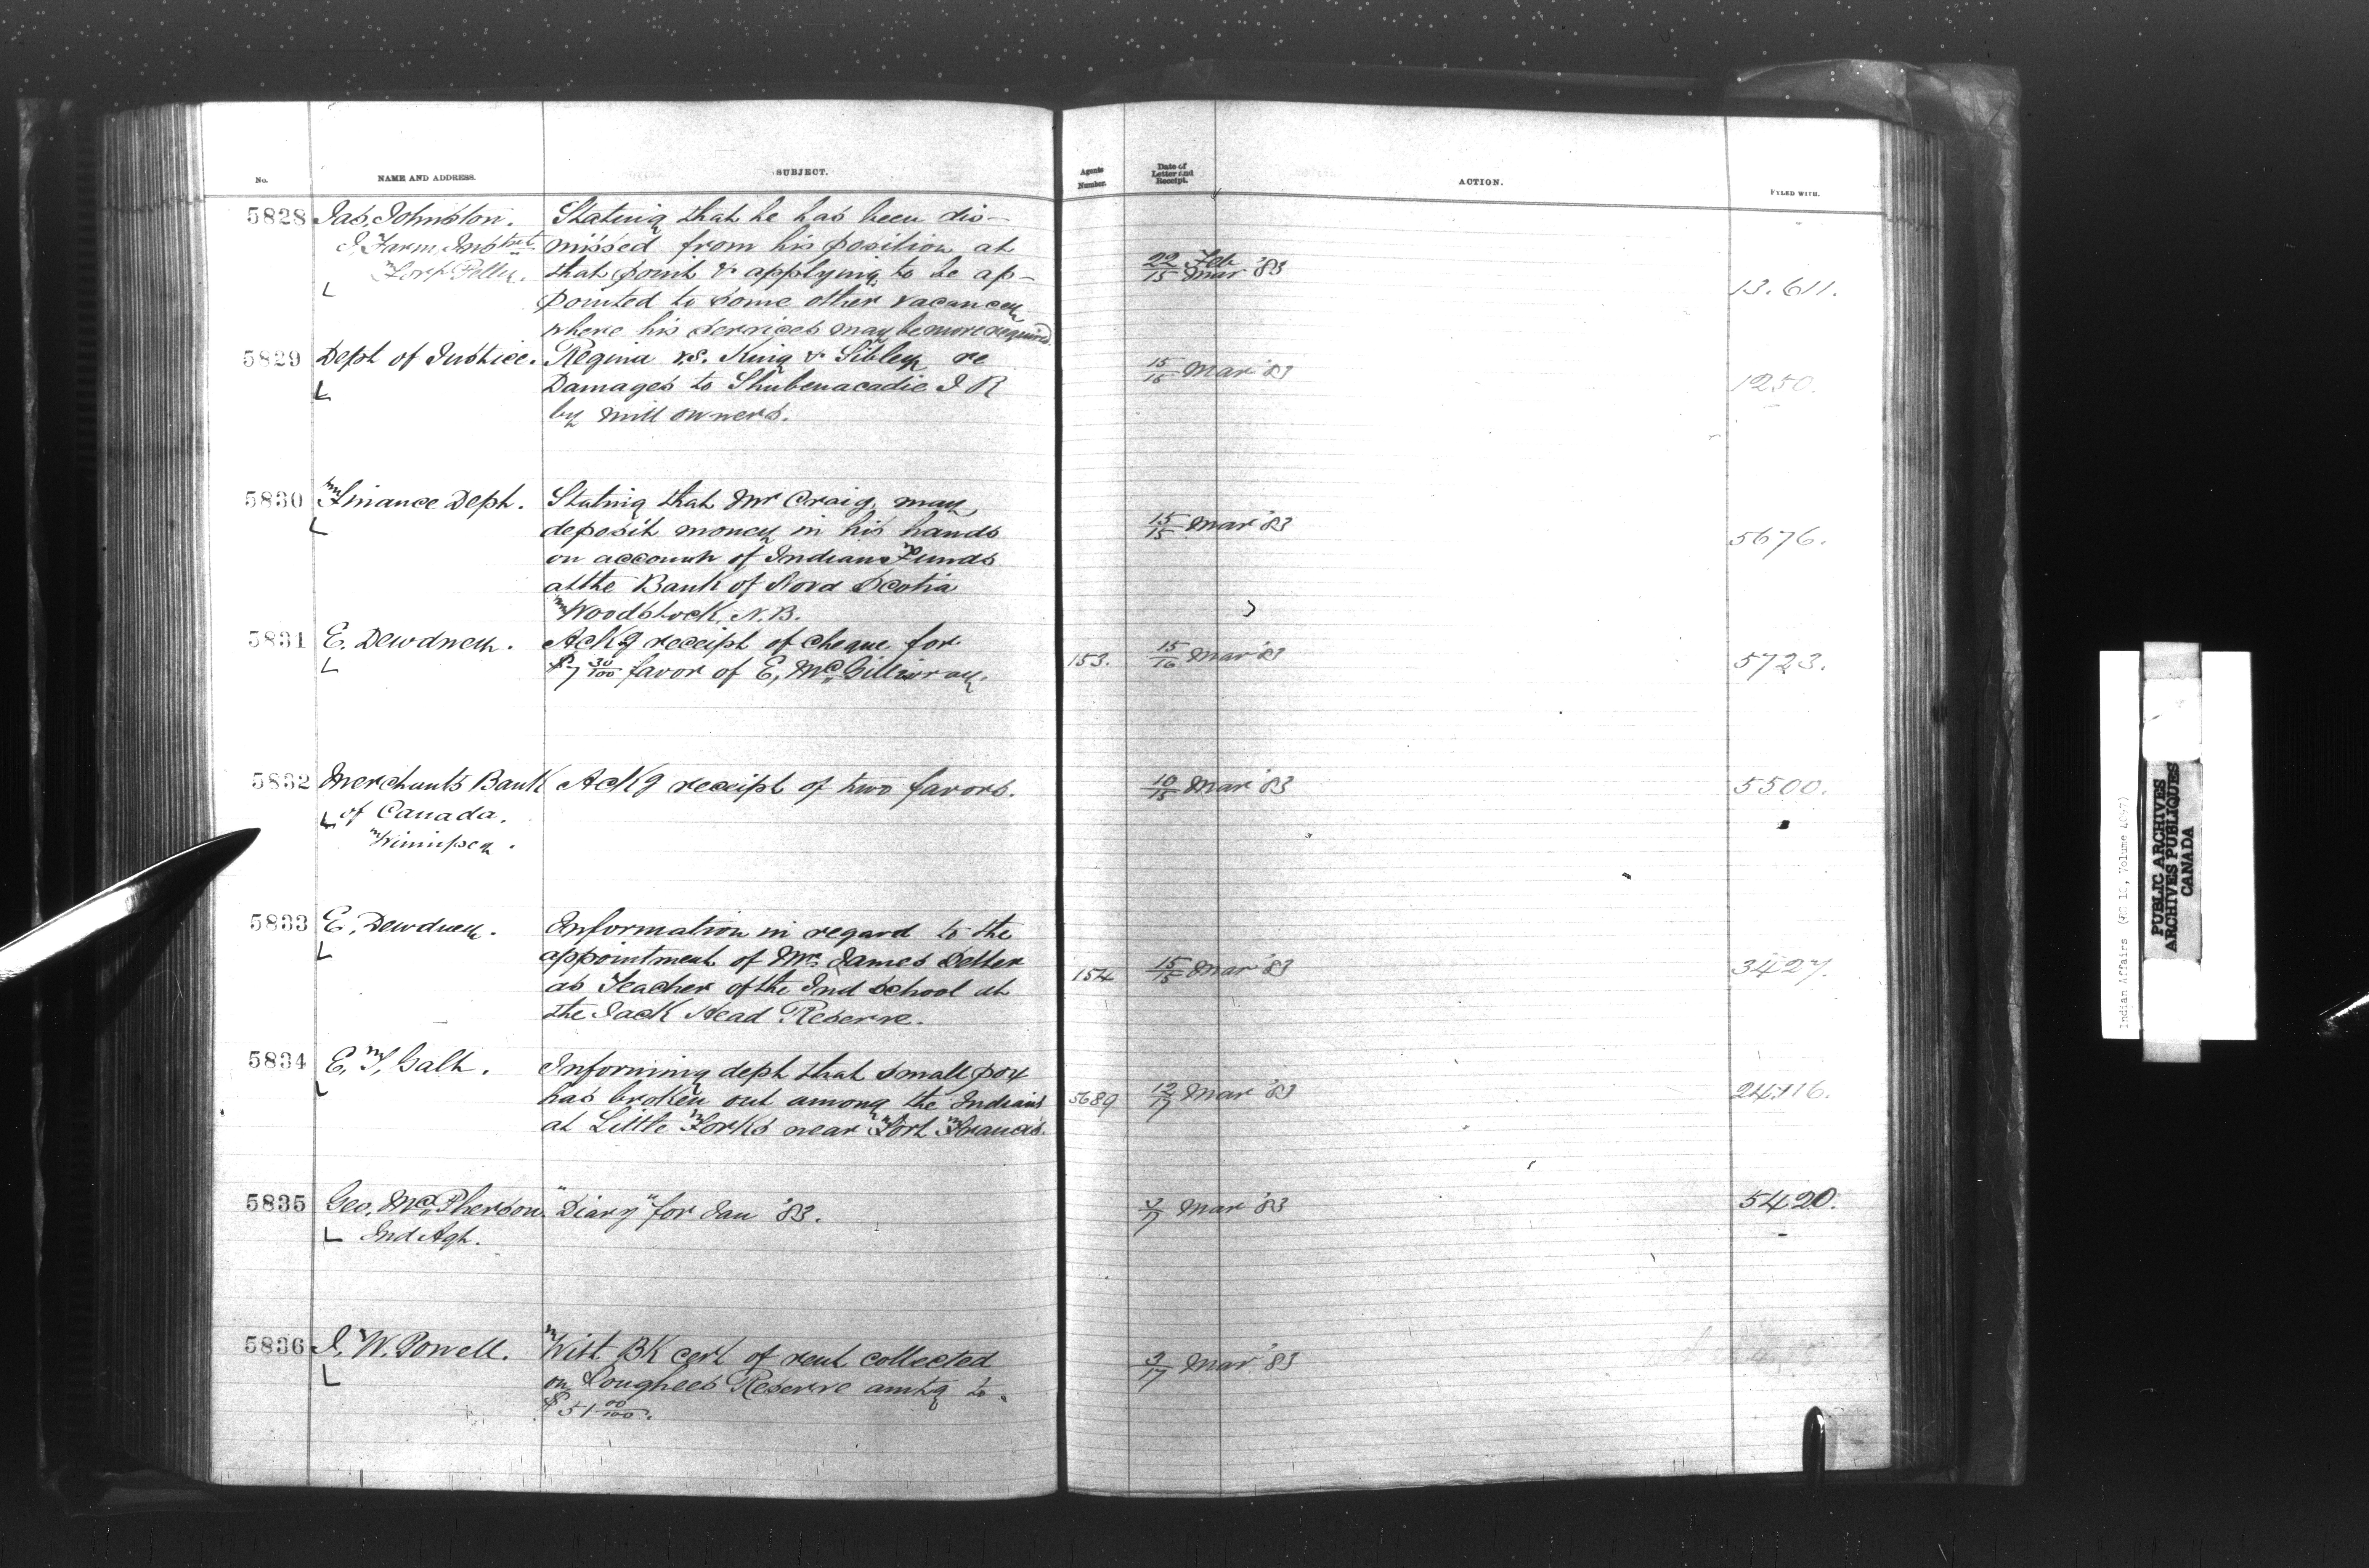 No.
NAME AND ADDRESS.
SUBJECT.
Agents
Number.
Date of
Letter and
Receipt.
ACTION.
FYLED WITH.
5828 Jas. Johnston. Stating that he has been dis-
missed from his position at
that point & applying to be ap-
pointed to some other vacancy
where his services may be more required
Farm Instrct
22 Feb
15 Mar '83
13.611.
5829 Dept of Justice. Regina vs. King & Sibley re
Damages to Shubenacadie I R
by mill owners.
15/15 Mar '83
1250.
5830 Finance Dept. Stating that Mr Craig, may
deposit money in his hands
on account of Indian Funds
at the Bank of Nova Scotia
Woodstock, N.B.
15/15 Mar '83
5676.
5831 E. Dewdney. Ackg receipt of cheque for
$7 30/100 favor of E, McGillivray.
153.
15/16 Mar '83
5723.
5832 Merchants Bank Ackg receipt of two favors.
of Canada.
Winnipeg.
10/15 Mar '83
5500.
5833 E. Dewdney. Information in regard to the
appointment of Mr. James Detter
as Teacher of the Ind School at
the Jack Head Reserve.
154
15/15 Mar '83
3427.
5834 E. T, Galt. Informing dept that small pox
has broken out among the Indians
at Little Forks near Fort Francis.
5689
12/17 Mar '83
5835 Geo. McPherson "Diary" for Jan '83.
Ind Agt.
Mar '83
5420.
5836 I. W. Powell. With BK cert of rent collected
on Songhees Reserve amtg to
$51 00/100.
3/17 Mar '83
Indian Affairs (RG 10, Volume
PUBLIC ARCHIVES
ARCHIVES PUBLIQUES
CANADA